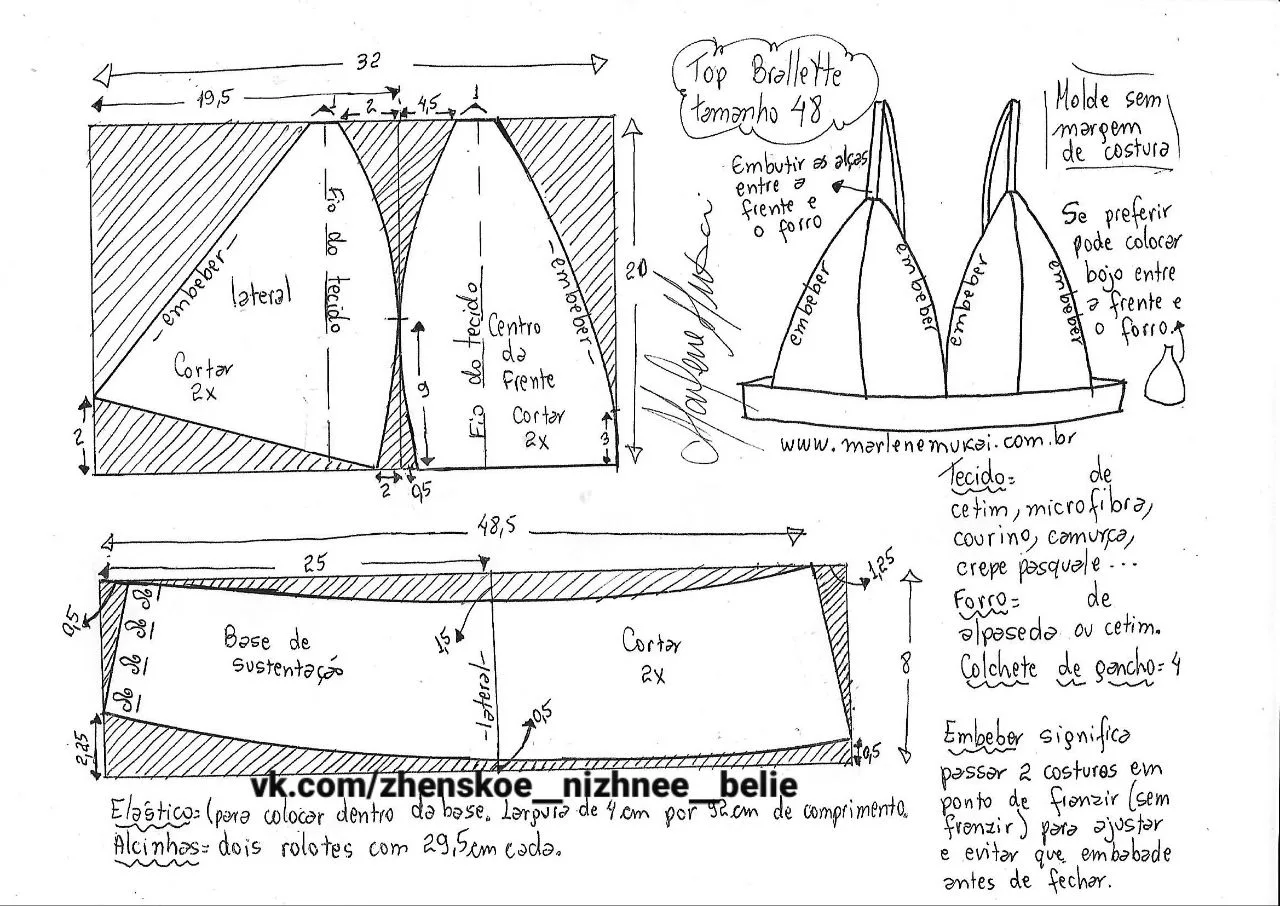 32
19,5
1
2
4,5
1
20
embeber
lateral
Fio do tecido
Cortar
2x
2
9
2
0,5
Fio do tecido
Centro
da
frente
Cortar
2x
embeber
3
Top Brallette
tamanho 48
Molde sem
margem
de costura
Embutir as alças
entre a
frente e
o forro
Se preferir
pode colocar
bojo entre
a frente e
o forro.
embeber
embeber
embeber
embeber
Marlene Mukai
www.marlenemukai.com.br
48,5
25
0,5
1,5
1,25
Base de
sustentação
-lateral-
Cortar
2x
8
2,25
0,5
0,5
vk.com/zhenskoe__nizhnee__belie
Elástico= (para colocar dentro da base. Largura de 4cm por cm de comprimento.
Alcinhas= dois rolotes com 29,5cm cada.
Tecido= de
cetim, microfibra,
courino, camurça,
crepe pasquale...
Forro= de
alpaseda ou cetim.
Colchete de gancho= 4
Embeber significa
passar 2 costuras em
ponto de franzir (sem
franzir) para ajustar
e evitar que embabade
antes de fechar.